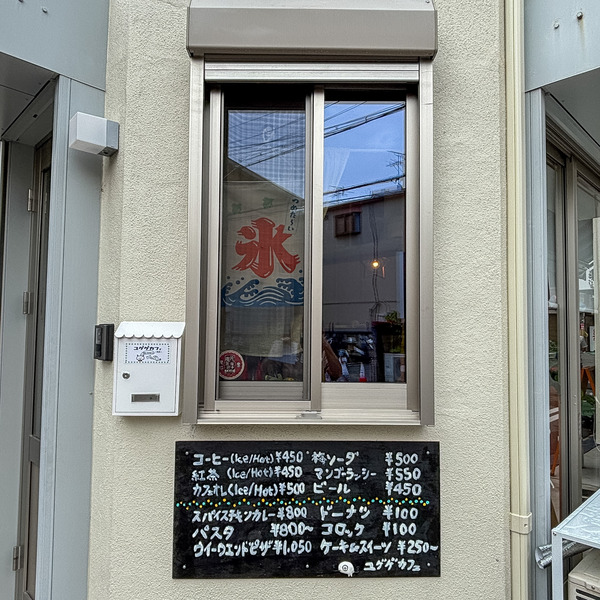 つめた〜い
氷
ユググカフェ
コーヒー(Ice/Hot)¥450 梅ソーダ ¥500
紅茶 (Ice/Hot)¥450 マンゴーラッシー ¥550
カフェオレ(Ice/Hot)¥500 ビール ¥450
スパイスチキンカレー¥800 ドーナツ ¥100
パスタ ¥800〜 コロッケ ¥100
ウイークエンドピザ¥1,050 ケーキ&スイーツ ¥250〜
ユググカフェ